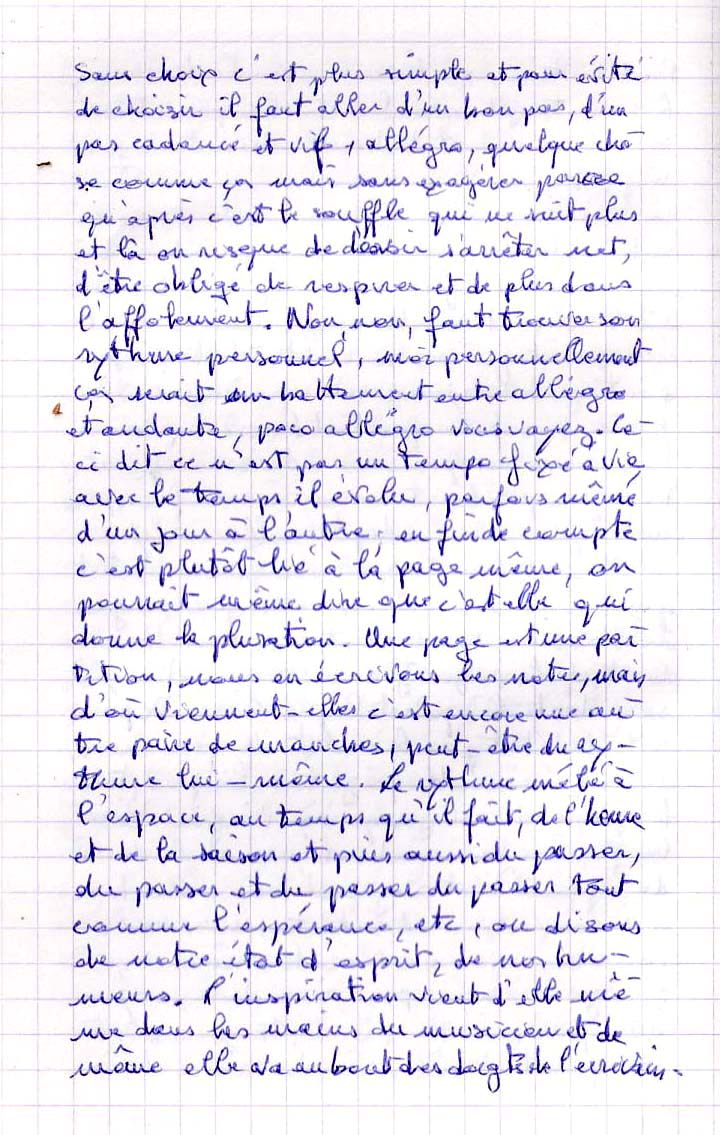 Sans choix c'est plus simple et pour évité
de choisir il faut aller d'un bon pas, d'un
pas cadancé et vif, allégro, quelque cho
se comme ça mais sans exagérer parcee
qu'après c'est le souffle qui ne suit plus
et là on risque de devoir s'arrêter net,
d'être obligé de respirer et de plus dans
l'affolement. Non, non, faut trouver son
rythme personnel, moi personnellement
ça serait un battement entre allégro
et andante, poco allégro vous voyez. Ce-
ci dit ce n'est pas un tempo fixé à vie
avec le temps il évolu, parfois même
d'un jour à l'autre, en fin de compte
c'est plutôt lié à la page même, on
pourrait même dire que c'est elle qui
donne la Une page est une par
tition, nous en écrivons les notes, mais
d'où viennent-elles c'est encore une au
tre paire de manches, peut-être du ry-
thme lui-même. Le rythme mêlé à
l'espace, au temps qu'il fait, de l'heure
et de la saison et puis aussi du passer,
du passer et du passer du passer tout
comme l'espérance, etc, ou disons
de notre état d'esprit, de nos hu-
meurs. L'inspiration vient d'elle mê
me dans les mains du musicien et de
même elle va au bout des doigts de l'écrivain.